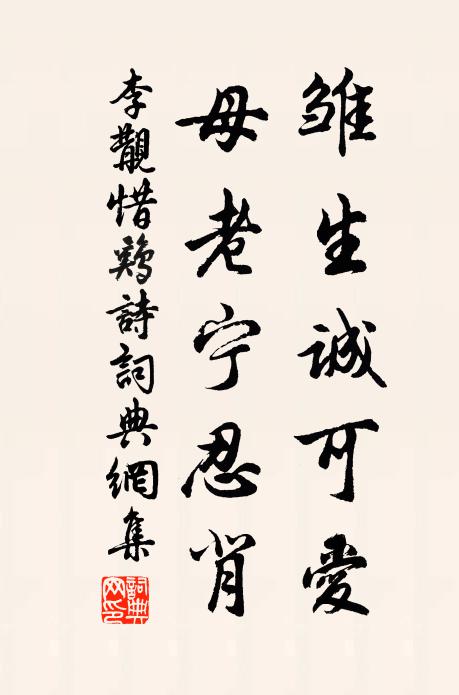 雏生诚可爱
母老宁忍背
李觏惜鸡诗词典網集
詞典网印